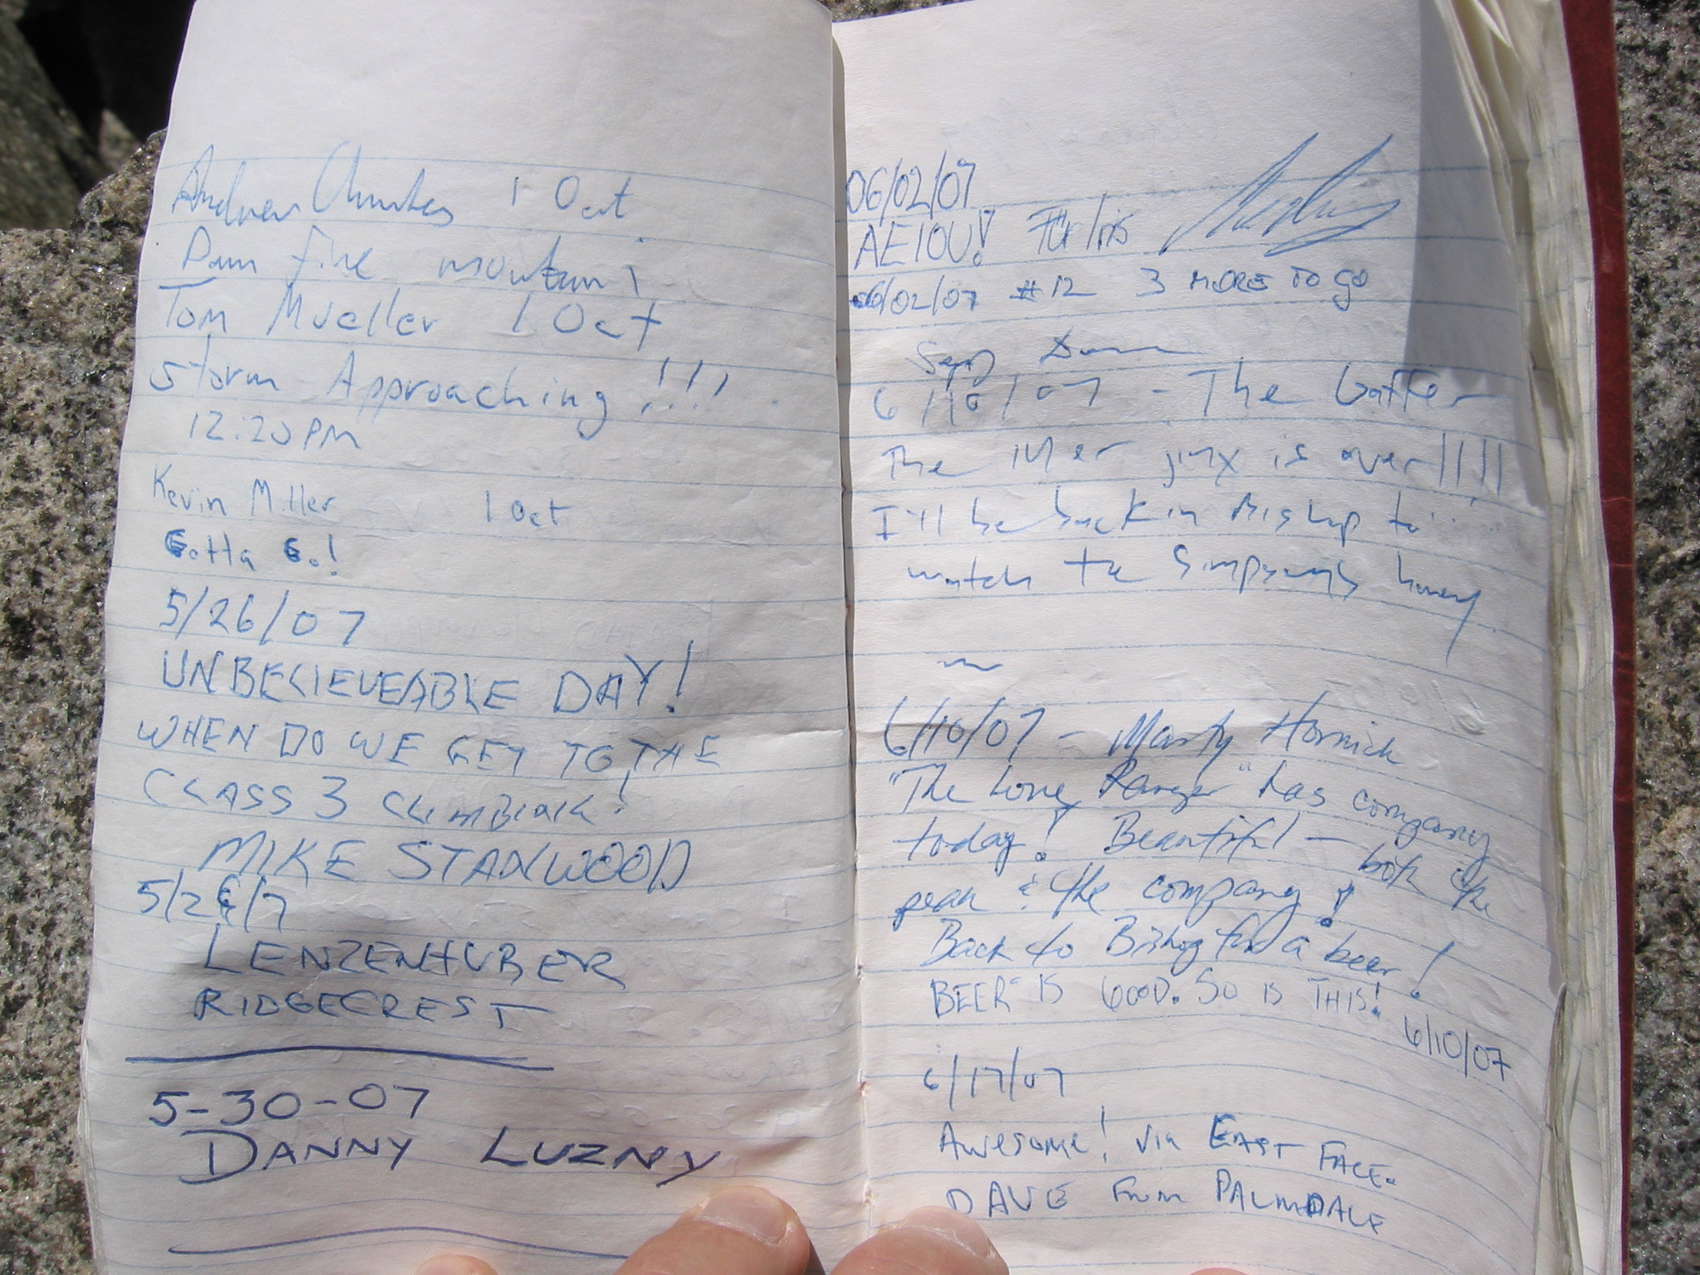 Andrew 1 Oct
Damn fine mountain!
Tom Mueller 1 Oct
Storm Approaching !!!
12:20 PM
Kevin Miller 1 Oct
Gotta Go!
5/26/07
UNBELIEVEABLE DAY!
WHEN DO WE GET TO THE
CLASS 3 CLIMBING!
MIKE STANWOOD
5/26/7
LENZENHUBER
RIDGECREST
5-30-07
DANNY LUZNY
06/02/07
AEIOU! Für Iris
06/02/07 #12 3 MORE TO GO
Sepp
6/10/07 - The Gaffer
The jinx is over!!!!
I'll be back in Bishop to
watch the Simpsons honey
6/10/07 - Marty Hornick
"The Lone Ranger" has company
today! Beautiful - both the
peak & the company!
Back to Bishop for a beer!
BEER IS GOOD. SO IS THIS!
6/10/07
6/17/07
AWESOME! VIA EAST FACE.
DAVE FROM PALMDALE